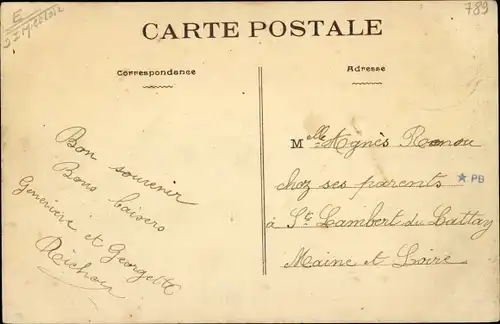 E
789
CARTE POSTALE
Correspondance
Adresse
Bon souvenir
Bons baisers
Geneviève et Georgette
Mlle Agnès Renou
chez ses parents
★ PB
à St Lambert du Lattay
Maine et Loire